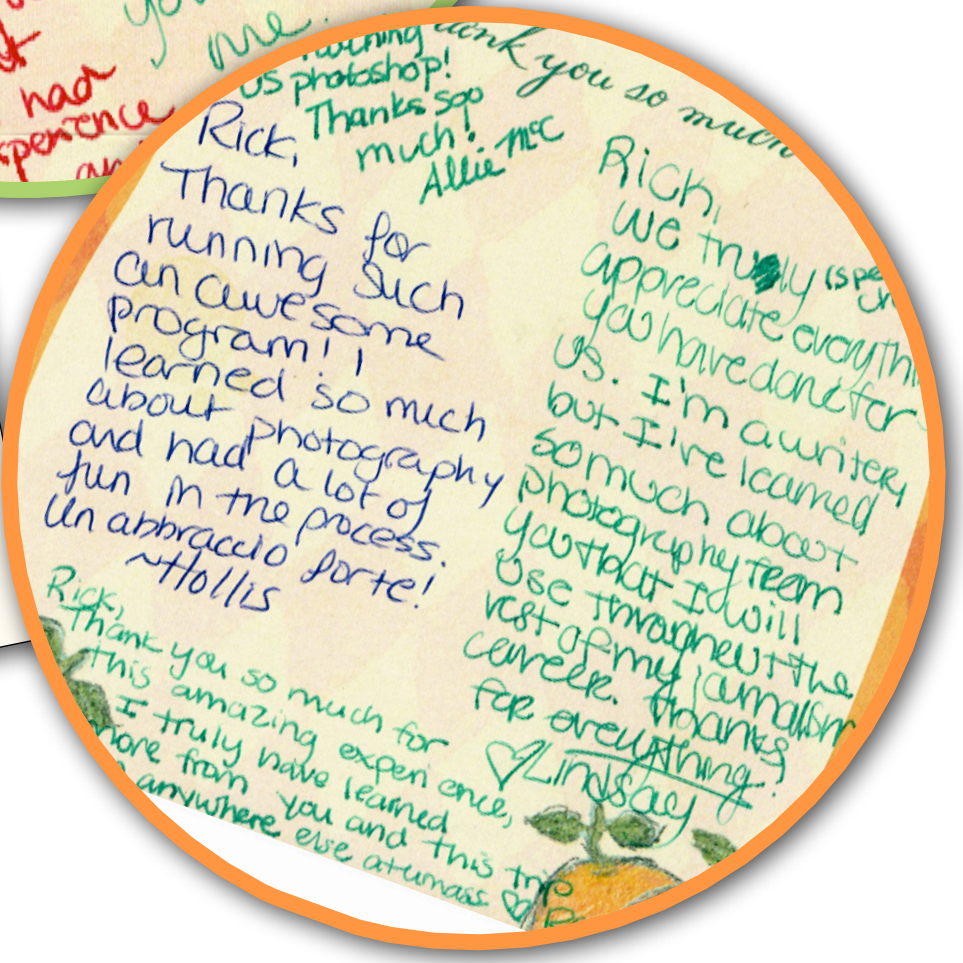 you
me.
had
US photoshop!
Thanks soo
much!
Allie McC
Thank you so much
Rick,
Thanks for
running such
an awesome
program! I
learned so much
about photography
and had a lot of
fun in the process.
Un abbraccio forte!
~Hollis
Rich,
we truly
appreciate
you have done for
us. I'm a writer,
but I've learned
so much about
photography from
you that I will
use throughout the
rest of my journalism
career. Thanks
for everything!
♡ Lindsay
Rick,
Thank you so much for
this amazing experience,
I truly have learned
more from you and this trip
anywhere else at umass ♡